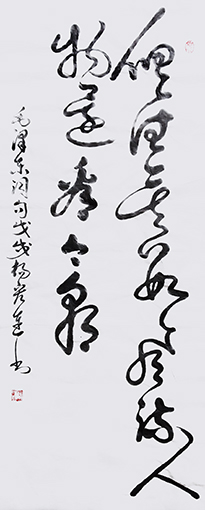 俱往矣数风流人
物还看今朝
毛泽东词句戊戌杨书